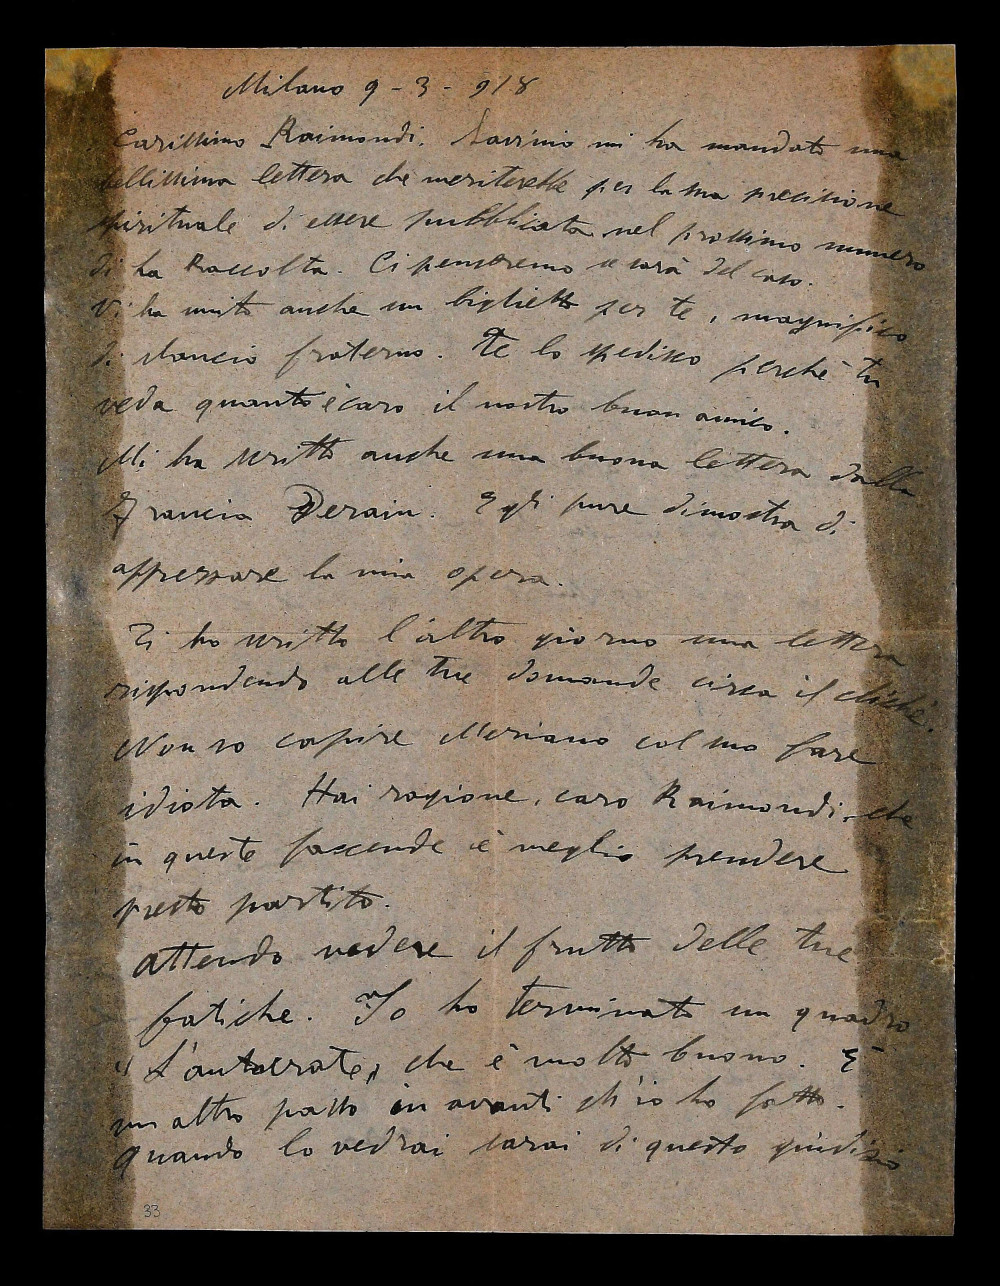 Milano 9-3-918
Carissimo Raimondi. Savinio mi ha mandato una
bellissima lettera che meriterebbe per la sua precisione
spirituale di essere pubblicata nel prossimo numero
di La Raccolta. Ci penseremo se sarà del caso.
Vi ha unito anche un biglietto per te, magnifico
di slancio fraterno. Te lo spedisco perchè tu
veda quanto è caro il nostro buon amico.
Mi ha scritto anche una buona lettera dalla
Francia Derain. Egli pure dimostra di
apprezzare la mia opera.
Ti ho scritto l'altro giorno una lettera
rispondendo alle tue domande circa il clichè.
Non so capire Meriano col suo fare
idiota. Hai ragione, caro Raimondi, che
in queste faccende è meglio prendere
presto partito.
Attendo vedere il frutto delle tue
fatiche. Io ho terminato un quadro
"L'autocrate" che è molto buono. È
un altro passo in avanti ch'io ho fatto.
Quando lo vedrai sarai di questo giudizio
33